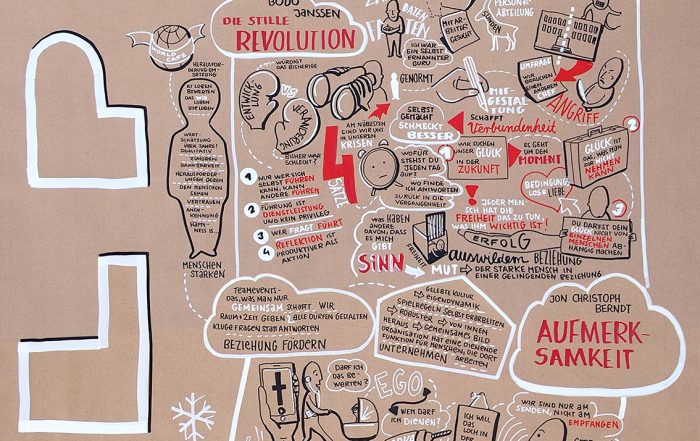 BODO
JANSSEN
DIE STILLE
REVOLUTION
WORLD
CAFÉ
HERAUSFORDERUNG
WERTSCHÄTZUNG
ÜBER JAHRE!
QUALITATIV
ZUHÖREN
DANKBARKEIT
HERAUSFORDERUNGEN
GEGEN
DEN MENSCHEN
SEHEN
VERTRAUEN
ANERKENNUNG
HAPPINESS IS...
MENSCHEN
STÄRKEN
WÜRDIGT
DAS BISHERIGE
ENTWICKLUNG
VS
VERÄNDERUNG
BISHER WAR
SCHLECHT?
AM NÄHESTEN
SIND WIR UNS
IN UNSEREN
KRISEN
4
SÄTZE
1 NUR WER SICH
SELBST FÜHREN
KANN, KANN
ANDERE FÜHREN
2 FÜHRUNG IST
DIENSTLEISTUNG
UND KEIN PRIVILEG
3 WER FRAGT FÜHRT
4 REFLEKTION IST
PRODUKTIVER ALS
AKTION
DATEN
MITARBEITER
GESUCHT
PERSONAL
ABTEILUNG
ICH WAR
EIN SELBST
ERNANNTER
GURU
GENORMT
MITGESTALTUNG
UMFRAGE
WIR
BRAUCHEN
EINEN
ANDEREN
CHEF
ANGRIFF
SELBST
GEMACHT
SCHMECKT
BESSER
SCHAFFT
Verbundenheit
WOFÜR
STEHST DU
JEDEN TAG
AUF?
WO FINDE
ICH ANTWORTEN
ZURÜCK IN DIE
VERGANGENHEIT
1 WIR SUCHEN
UNSER GLÜCK
IN DER
ZUKUNFT
ES GEHT UM
DEN MOMENT
2
GLÜCK IST
DAS, WAS
MIR
NEHMEN
KANN
BEDINGUNGSLOSE
LIEBE
! JEDER MENSCH
HAT DIE
FREIHEIT DAS ZU TUN,
WAS IHM WICHTIG IST!
3
DU DARFST DEIN
GLÜCK NICHT VON
EINZELNEN
MENSCHEN ABHÄNGIG
MACHEN
WAS HABEN
ANDERE
DAVON, DASS
ES MICH
GIBT
SINN
FREIHEIT
ERFOLG
auswildern
MUT
BEZIEHUNG
DER STARKE MENSCH IN
EINER GELINGENDEN BEZIEHUNG
TEAMEVENTS-
DAS, WAS MAN NUR
GEMEINSAM SCHAFFT WIR
RAUM + ZEIT GEBEN ALLE DÜRFEN GESTALTEN
KLUGE FRAGEN STATT ANTWORTEN
BEZIEHUNG FÖRDERN
GELEBTE KULTUR
EIGENDYNAMIK
SPIELREGELN SELBST ERARBEITEN
ROBUSTER VON INNEN
HERAUS GEMEINSAMES BILD
ORGANISATION HAT EINE DIENENDE
FUNKTION FÜR MENSCHEN, DIE DORT
UNTERNEHMEN ARBEITEN
JON CHRISTOPH
BERNDT
AUFMERKSAMKEIT
DARF ICH
DAS BEWERTEN?
EGO
WEM DARF
ICH DIENEN?
ICH WILL
DAS LOCH IN
DER
WIR SIND NUR AM
SENDEN, NICHT AM
EMPFANGEN